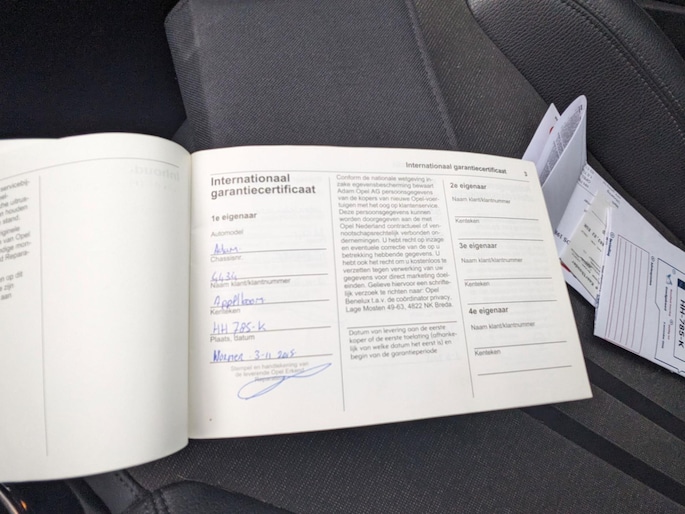 Internationaal garantiecertificaat
3
Internationaal
garantiecertificaat
1e eigenaar
Automodel
Adam
Chassisnr.
4434
Naam klant/klantnummer
Appelboom
Kenteken
HH 785-K
Plaats, datum
3-11
Stempel en handtekening van
de leverende Opel Erkend
Reparateur
Conform de nationale wetgeving in-
zake egevensbescherming bewaart
Adam Opel AG persoonsgegevens
van de kopers van nieuwe Opel-voer-
tuigen met het oog op klantenservice.
Deze persoonsgegevens kunnen
worden doorgegeven aan de met
Opel Nederland contractueel of ven-
nootschapsrechtelijk verbonden on-
dernemingen. U hebt recht op inzage
en eventuele correctie van de op u
betrekking hebbende gegevens. U
hebt ook het recht om u kosteloos te
verzetten tegen verwerking van uw
gegevens voor direct marketing doel-
einden. Gelieve hiervoor een schrifte-
lijk verzoek te richten naar: Opel
Benelux t.a.v. de coördinator privacy,
Lage Mosten 49-63, 4822 NK Breda.
Datum van levering aan de eerste
koper of de eerste toelating (afhanke-
lijk van welke datum het eerst is) en
begin van de garantieperiode
2e eigenaar
Naam klant/klantnummer
Kenteken
3e eigenaar
Naam klant/klantnummer
Kenteken
4e eigenaar
Naam klant/klantnummer
Kenteken
HH-785-K